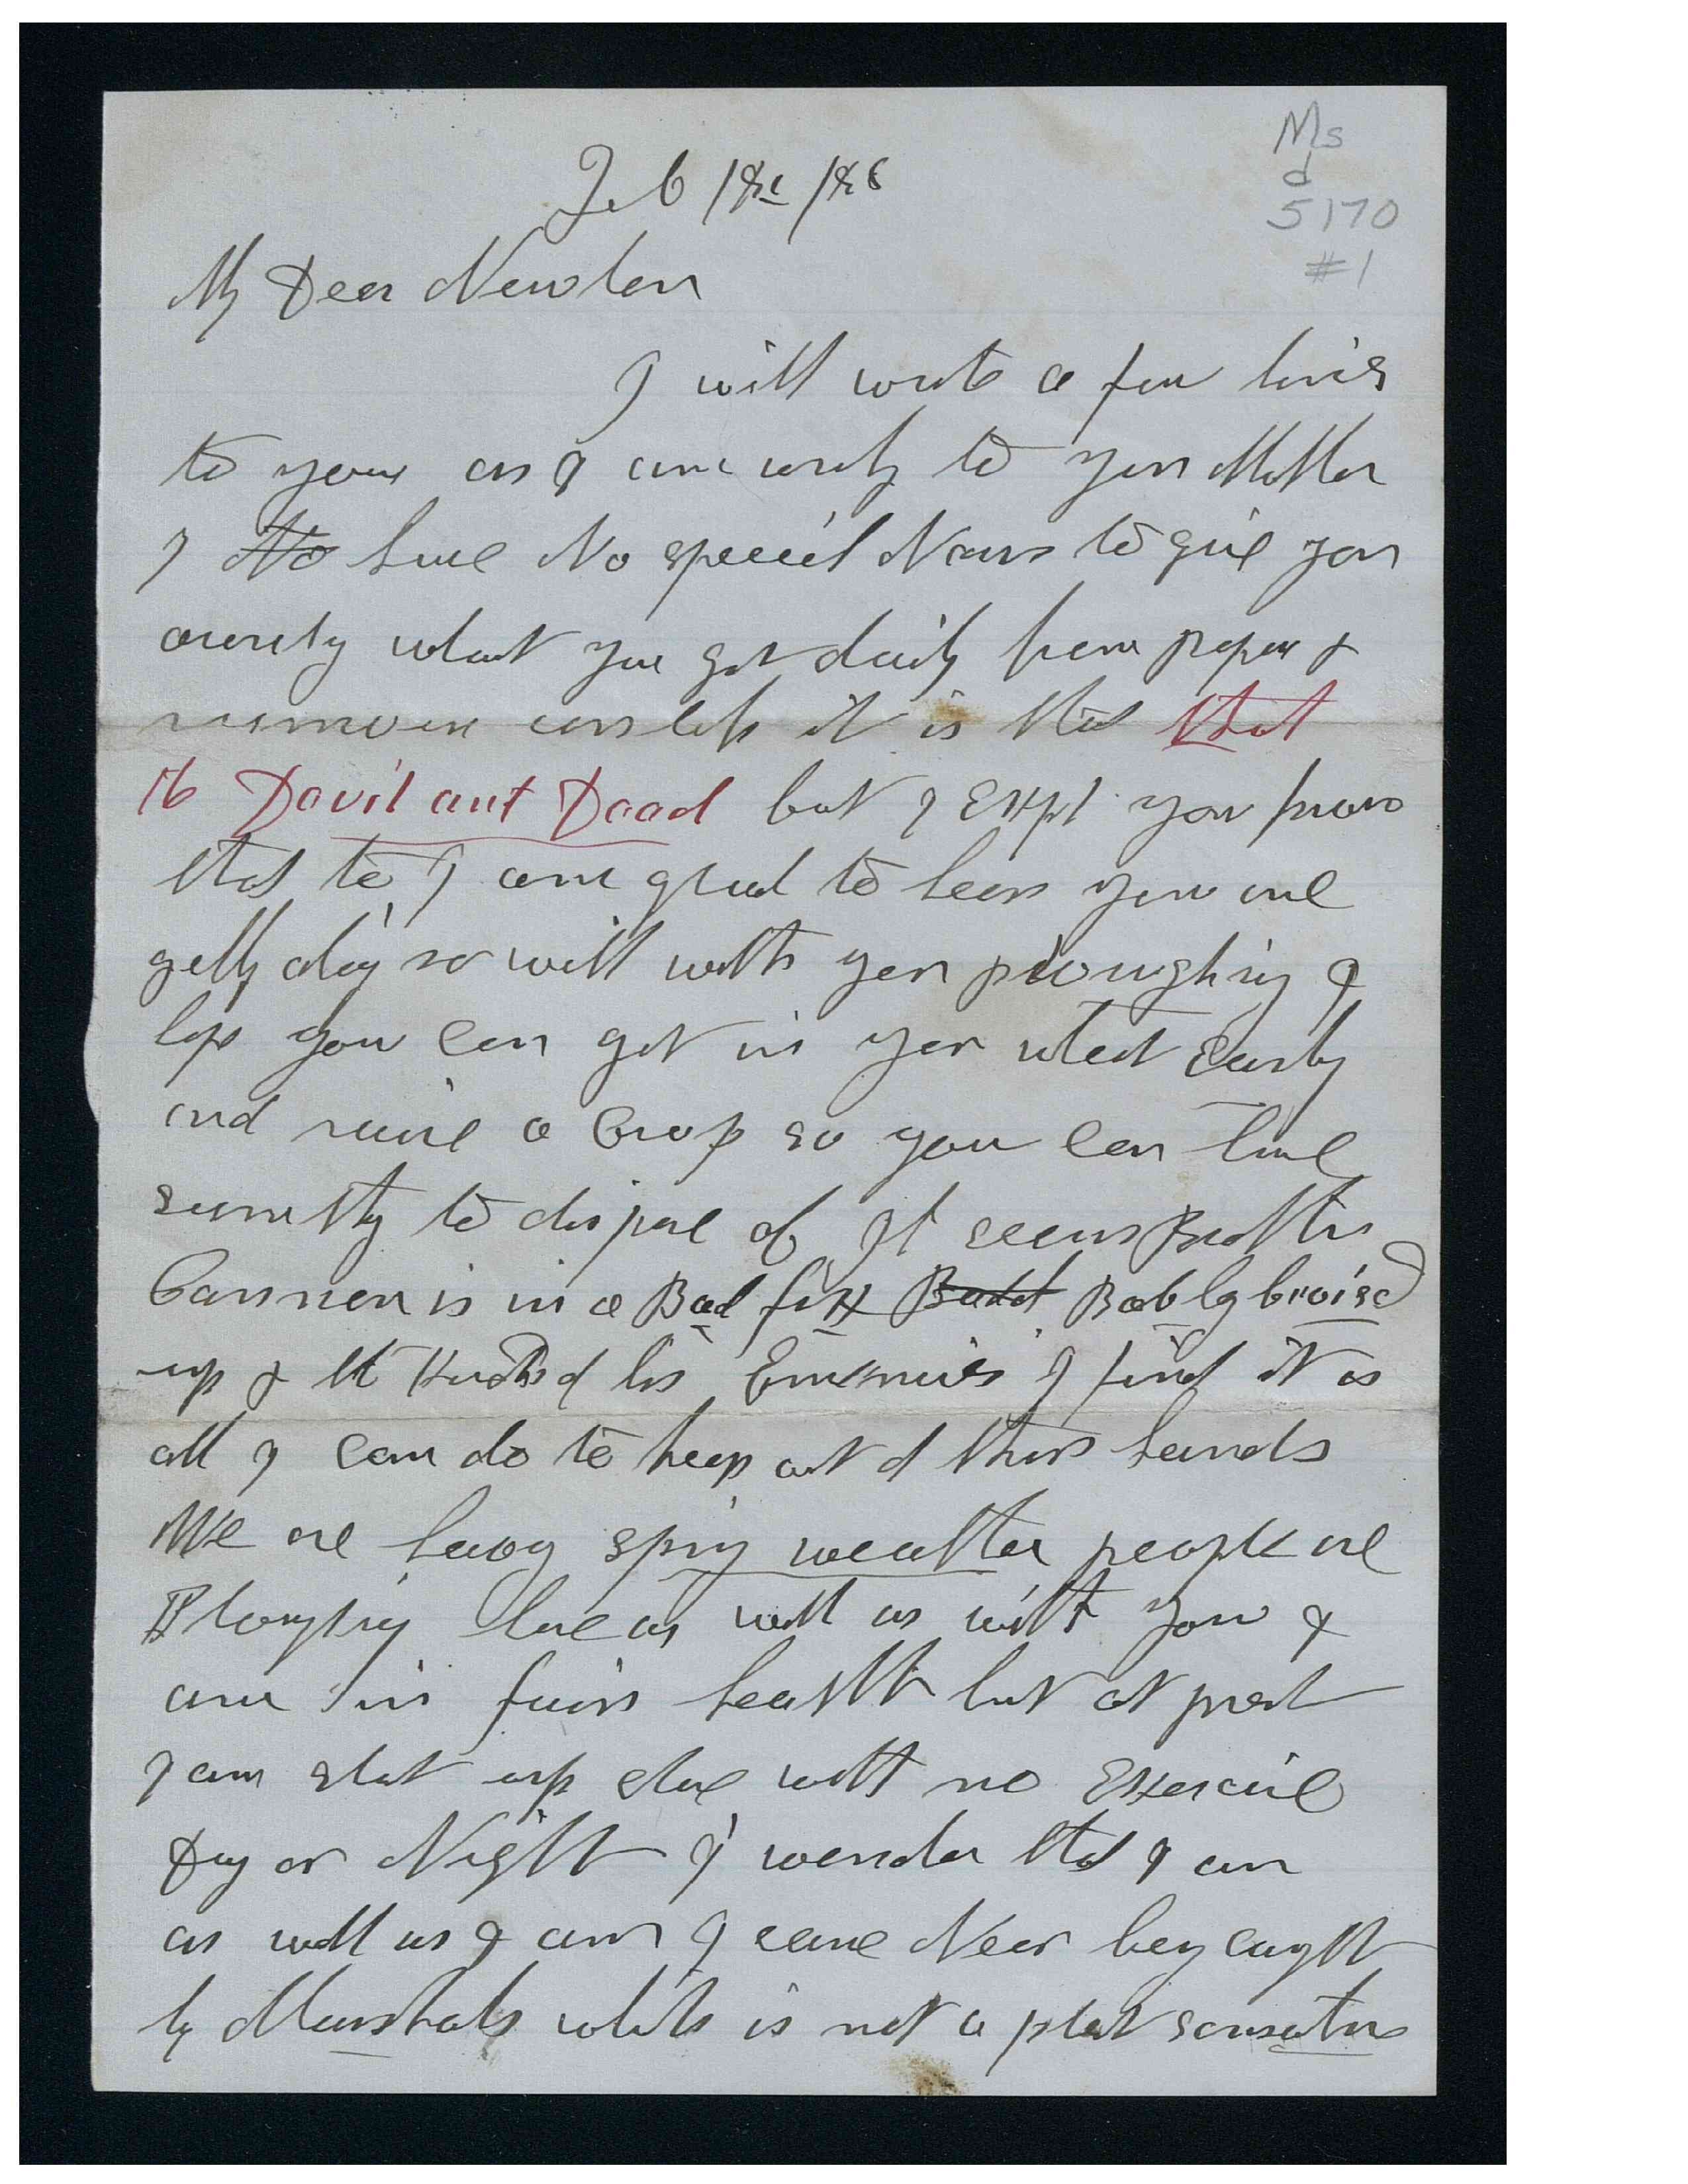 Ms
d
5170
#1
Feb 18 1886
My Dear Newton
I will write a few lines
to you as I am writing to your Mother
I No have No special News to give you
what you get daily from papers &
it is this that
the Devil ant Dead but I Expt you know
that to I am glad to hear you are
getting along so well with your ploughing I
hope you can get in your wheat Early
and raise a Crop so you can have
something to dispose of It seems Brother
Cannon is in a Bad fix Badly bruised
up & the Hands of his Enemies I find it is
all I can do to keep out of their hands
We are having spring weather people are
Ploughing here as well as with You I
am in fair health but at present
I am shut up close with no Exercise
Day or Night I wonder that I am
as well as I am I came Near being caught
by Marshals which is not a pleasant sensation